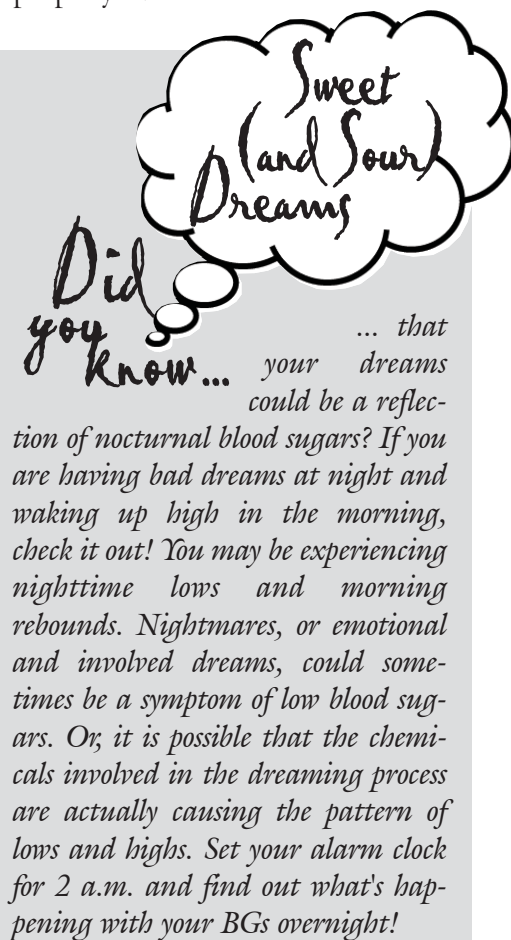 Sweet
(and Sour)
Dreams
Did
you
know...
... that
your dreams
could be a reflec-
tion of nocturnal blood sugars? If you
are having bad dreams at night and
waking up high in the morning,
check it out! You may be experiencing
nighttime lows and morning
rebounds. Nightmares, or emotional
and involved dreams, could some-
times be a symptom of low blood sug-
ars. Or, it is possible that the chemi-
cals involved in the dreaming process
are actually causing the pattern of
lows and highs. Set your alarm clock
for 2 a.m. and find out what's hap-
pening with your BGs overnight!